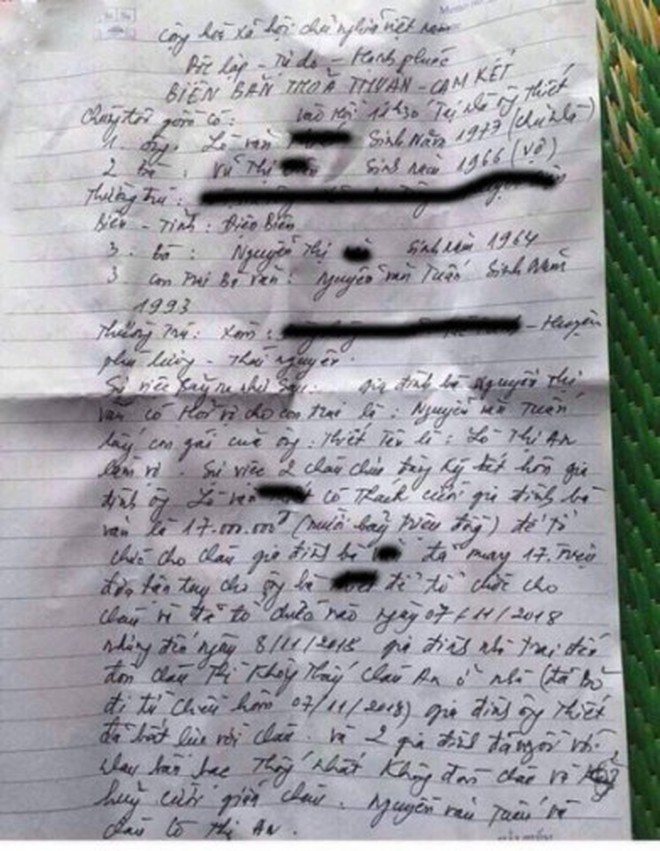 Cộng hoà xã hội chủ nghĩa việt nam
Độc lập - Tự do - Hạnh phúc
BIÊN BẢN THOẢ THUẬN - CAM KẾT
Chúng tôi gồm có: vào hồi 11h30 Tại nhà ông Thiết
1. ông: Lò văn Sinh Năm 1977 (chủ hộ)
2 Bà: Vũ Thị Sinh năm 1966 (vợ)
Thường trú:
Biên - Tỉnh: Điện Biên
3. bà: Nguyễn Thị Sinh năm 1964
3 con trai Bà vân: Nguyễn văn Tuấn Sinh Năm
1993
Thường Trú: Xóm: - Huyện
phú lương - Thái nguyên.
Sự việc Sảy ra như sau: gia đình bà Nguyễn Thị
vân có Hỏi vợ cho con trai là: Nguyễn văn Tuấn
lấy con gái của ông: Thiết Tên là: Lò Thị An
làm vợ. Sự việc 2 cháu chưa đăng ký kết hôn gia
đình ông Lò văn có Thách cưới gia đình bà
vân là 17.000.000đ (mười bảy triệu đồng) để tổ
chức cho cháu gia đình bà đã 17. triệu
đưa tận tay cho ông bà để tổ chức cho
cháu và đã tổ chức vào ngày 07/11/2018
nhưng đến ngày 8/11/2018 gia đình nhà trai đến
đón cháu Thì Không Thấy cháu An ở nhà (đã Bỏ
đi từ chiều hôm 07/11/2018) gia đình ông Thiết
đã bất lực với cháu. và 2 gia đình đã ngồi với
nhau bàn bạc Thống Nhất Không đón cháu về
huỷ cưới giữa cháu. Nguyễn văn Tuấn và
cháu Lò Thị AN.